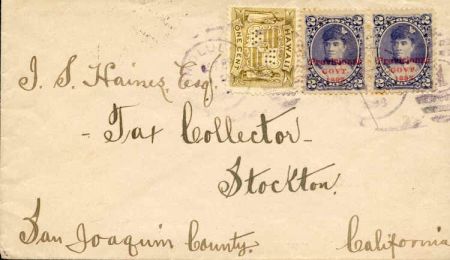 HAWAII
ONE CENT
2 2
Provisional
GOVT.
1893
2 2
Provisional
GOVT.
1893
J. S. Haines Esq.
- Tax Collector -
Stockton.
San Joaquin County. California